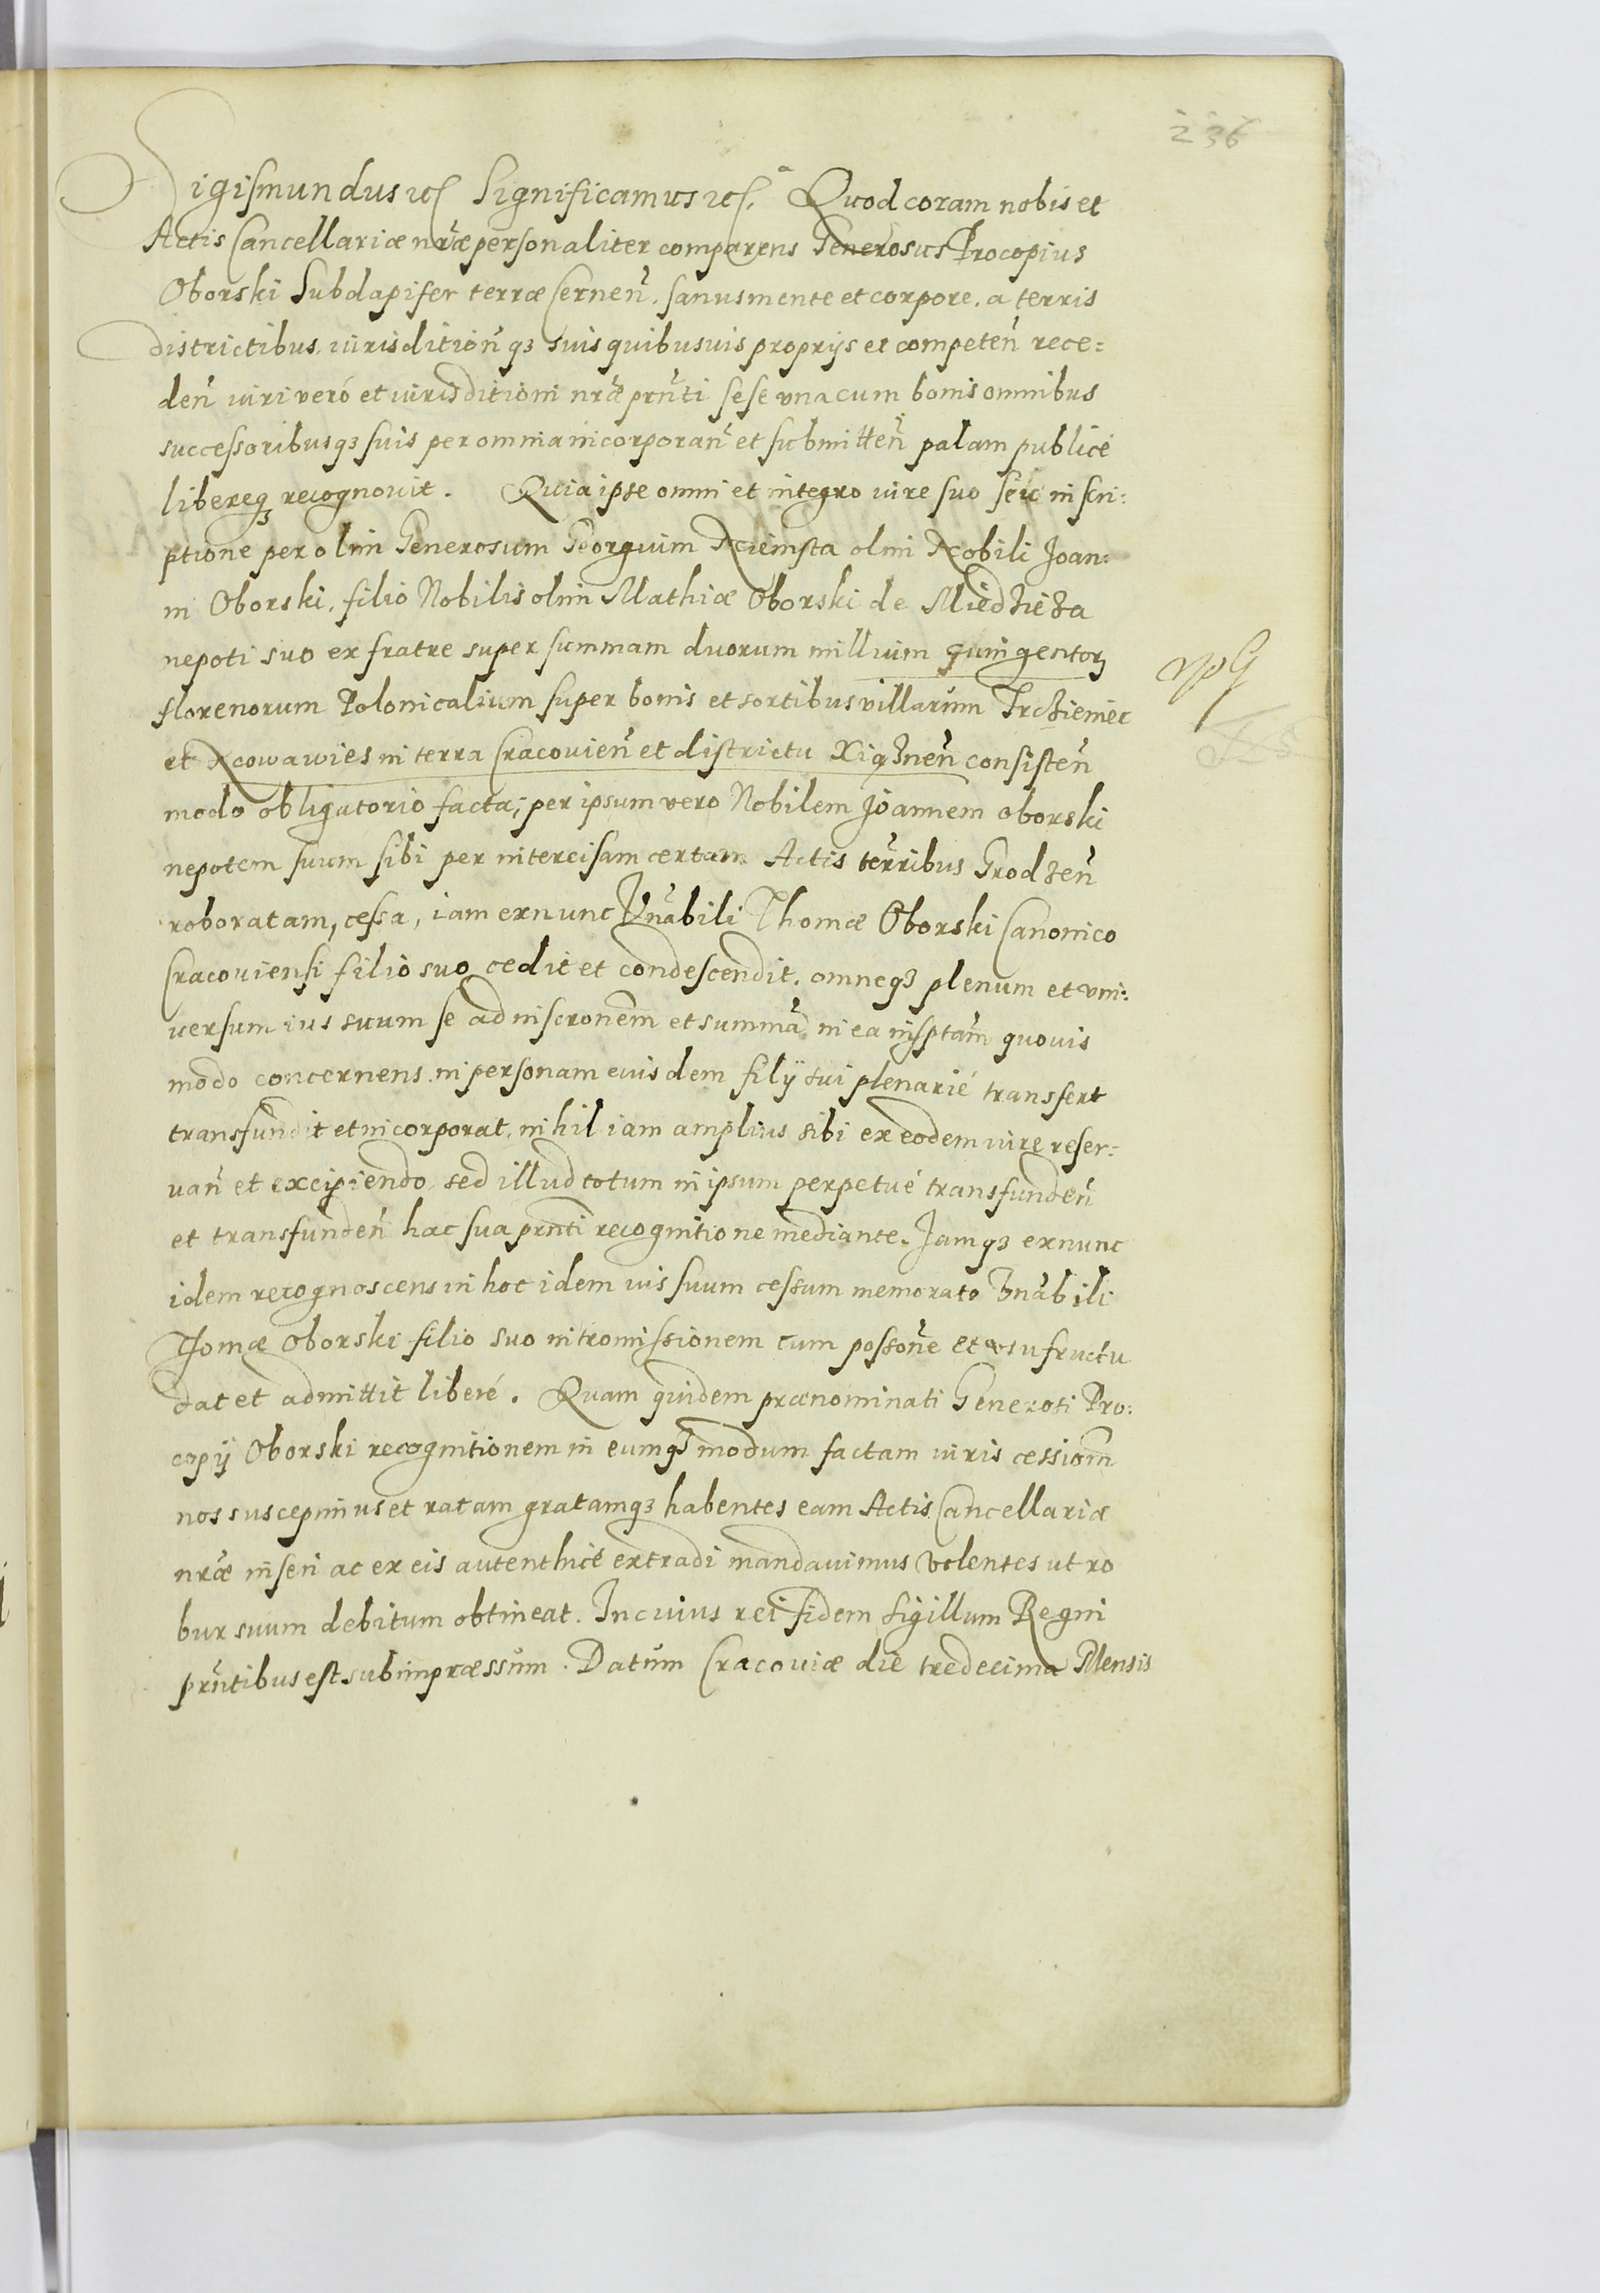 236
Sigismundus etc. Significamus etc. Quod coram nobis et
Actis Cancellariæ nr̃æ personaliter comparens Generosus Procopius
Oborski Subdapifer terræ Cernen̄. sanus mente et corpore, a terris
districtibus iurisdition̄ qȝ suis quibusuis proprijs et competen̄ rece=
den̄ iuri veró et iurisditioni nr̃æ prn̄ti sese vna cum bonis omnibus
successoribusqȝ suis per omnia incorporan̄ et submitten̄ palam publicé
libereqȝ recognouit. Quia ipse omni et integro iure suo seu inscri:
ptione per olim Generosum Georgium Niemsta olim Nobili Joan:
ni Oborski, filio Nobilis olim Mathiæ Oborski de Miedzieza
nepoti suo ex fratre super summam duorum millium quingentorȝ
florenorum Polonicalium super bonis et sortibus villarum Trczieniec
et Nowawies in terra Cracouien̄ et districtu Xiąznen̄ consisten̄
modo obligatorio facta; per ipsum vero Nobilem Joannem oborski
nepotem suum sibi per intercisam certam Actis ter̄ribus Grodzen̄
roboratam, cessa, iam ex nunc Vn̄abili Thomæ Oborski Canonico
Cracouiensi filio suo cedit et condescendit. omneqȝ plenum et vni:
uersum ius suum se ad inscronem̄ et summā in ea insptam̄ quouis
modo concernens in personam euisdem filÿ sui plenarié transfert
transfundit et incorporat, nihil iam amplius sibi ex eodem iure reser=
uan̄ et excipiendo sed illud totum in ipsum perpetué transfunden̄
et transfunden̄ hac sua prn̄ti recognitione mediante. Jamqȝ ex nunc
idem recognoscens in hoc idem ius suum cessum memorato Vn̄abili
Thomæ Oborski filio suo intromissionem cum possōne et vsufructu
dat et admittit liberé. Quam quidem prænominati Generosi Pro:
copij Oborski recognitionem in eumqȝ modum factam iuris cessiom̄
nos suscepimus et ratam gratamqȝ habentes eam Actis Cancellariæ
nr̃æ inseri ac ex eis autenthicé extradi mandauimus Volentes ut ro
bur suum debitum obtineat. In cuius rei fidem sigillum Regni
prn̄tibus est subimpræssum. Datum Cracouiæ die tredecima Mensis